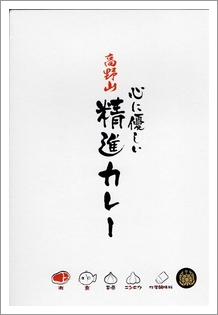 高野山
心に優しい
精進カレー
肉
魚
玉葱
ニンニク
化学調味料